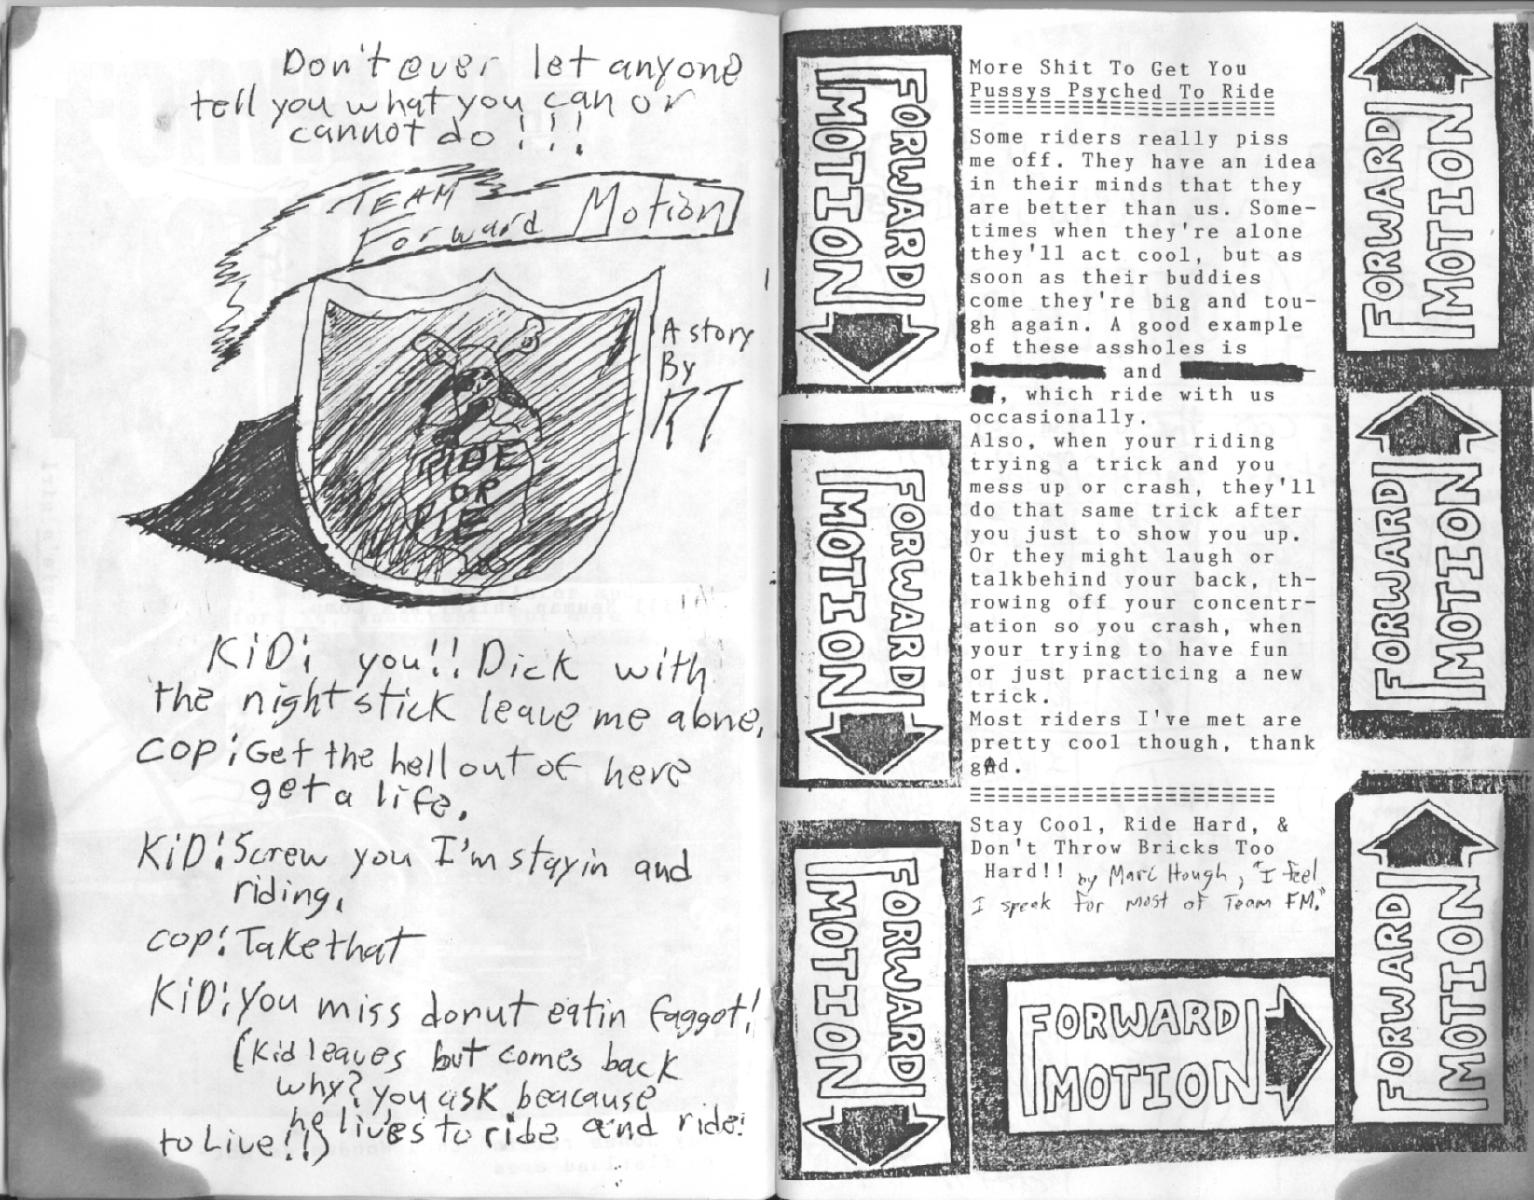 Don't ever let anyone
tell you what you can or
cannot do!!!
TEAM
Forward Motion
A story
By
RT
RIDE
OR
DIE
KiD: you!! Dick with
the nightstick leave me alone,
COP: Get the hell out of here
get a life.
KiD: Screw you I'm stayin and
riding.
COP: Take that
KiD: You miss donut eatin faggot!
(Kid leaves but comes back
why? you ask beacause
he lives to ride and ride
to Live!!)
FORWARD
MOTION
FORWARD
MOTION
FORWARD
MOTION
More Shit To Get You
Pussys Psyched To Ride
======================
Some riders really piss
me off. They have an idea
in their minds that they
are better than us. Some-
times when they're alone
they'll act cool, but as
soon as their buddies
come they're big and tou-
gh again. A good example
of these assholes is
and
, which ride with us
occasionally.
Also, when your riding
trying a trick and you
mess up or crash, they'll
do that same trick after
you just to show you up.
Or they might laugh or
talkbehind your back, th-
rowing off your concentr-
ation so you crash, when
your trying to have fun
or just practicing a new
trick.
Most riders I've met are
pretty cool though, thank
gAd.
======================
Stay Cool, Ride Hard, &
Don't Throw Bricks Too
Hard!! by Marc Hough, "I feel
I speak for most of Team FM."
FORWARD
MOTION
FORWARD
MOTION
FORWARD
MOTION
FORWARD
MOTION